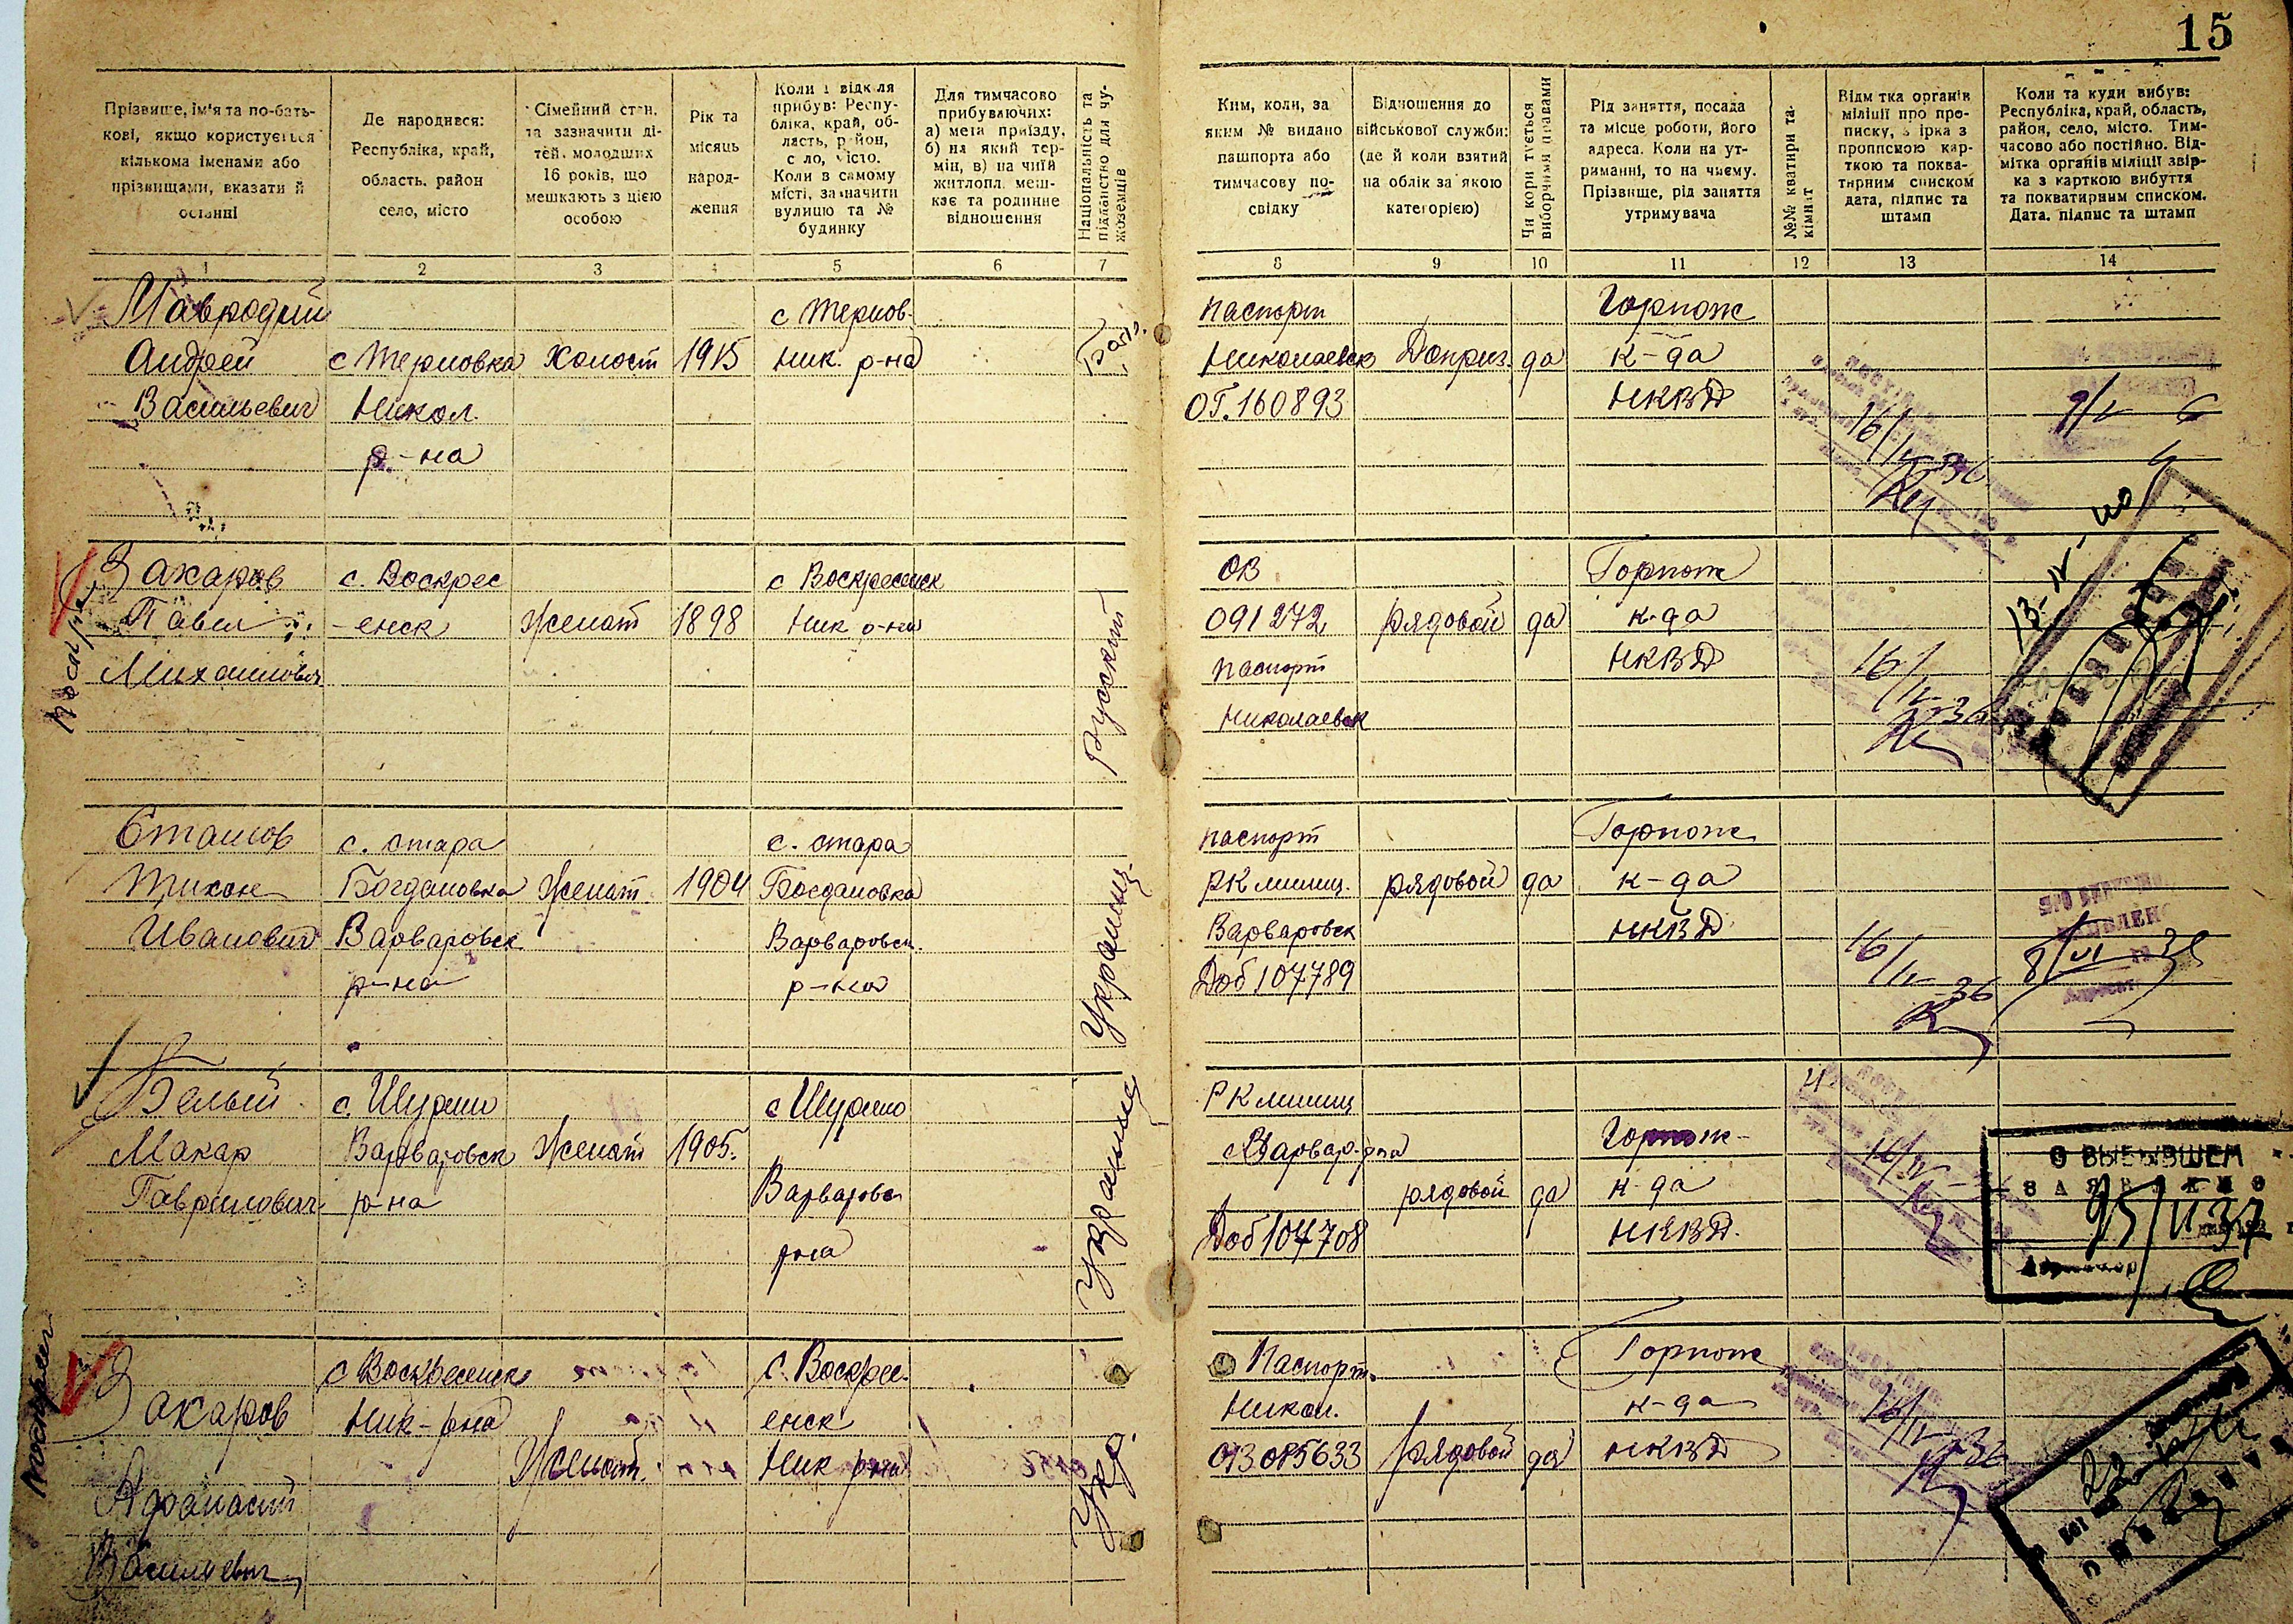 15
Прізвище, ім'я та по-бать-
кові, якщо користується
кількома іменами або
прізвищами, вказати й
останні
Де народився:
Республіка, край,
область, район
село, місто
Сімейний стан,
та зазначити ді-
тей, молодших
16 років, що
мешкають з цією
особою
Рік та
місяць
народ-
ження
Коли і відкіля
прибув: Респу-
бліка, край, об-
ласть, район,
село, місто.
Коли в самому
місті, зазначити
вулицю та №
будинку
Для тимчасово
прибуваючих:
а) мета приїзду,
б) на який тер-
мін, в) на чиїй
житлопл. меш-
кає та родинне
відношення
Національність та
підданство для чу-
жоземців
Ким, коли, за
яким № видано
пашпорта або
тимчасову по-
свідку
Відношення до
військової служби:
(де й коли взятий
на облік за якою
категорією)
Чи користується
виборчими правами
Рід заняття, посада
та місце роботи, його
адреса. Коли на ут-
риманні, то на чиєму.
Прізвище, рід заняття
утримувача
№№ кватири та
кімнат
Відмітка органів
міліції про про-
писку, звірка з
пропискою кар-
ткою та поква-
тирним списком
дата, підпис та
штамп
Коли та куди вибув:
Республіка, край, область,
район, село, місто. Тим-
часово або постійно. Від-
мітка органів міліції звір-
ка з карткою вибуття
та покватирним списком.
Дата, підпис та штамп
1 2 3 4 5 6 7 8 9 10 11 12 13 14
Мавродий
Андрей
Васильевич
с Терновка
Никол.
р-на
Холост
1915
с Тернов.
Ник. р-на
Болг.
паспорт
Николаевск
ОГ.160893
Доприз.
да
Горпож
к-да
НКВД
16/IV-36
Захаров
Павел
Михайлович
с. Воскрес
-енск
Женат
1898
с Воскресенск
Ник р-на
Русский
ОВ
091272
паспорт
Николаевск
рядовой
да
Горпож
к-да
НКВД
16/IV-36
13-IV-40
Сташов
Тихон
Иванович
с. Стара
Богдановка
Варваровск
р-на
Женат
1904
с. Стара
Богдановка
Варваровск.
р-на
Украинц.
паспорт
РК милиц.
Варваровск
Доб 107789
рядовой
да
Горпож
к-да
НКВД
16/IV-36
8/VI 36
Белый
Макар
Гаврилович
с Шурино
Варваровск
р-на
Женат
1905.
с Шурино
Варваровск
рна
Украинц
РК милиц
с Варвар. рна
Доб 107708
рядовой
да
Горпож-
к-да
НКВД.
16/IV
О ВЫБЫВШЕМ
ЗАЯВЛЕНО
Захаров
Афанасий
Васильевич
с Воскресенск
Ник-рна
Женат.
с. Воскрес.
енск
Ник рна
Укр.
Паспорт.
Никол.
ОВ 085633
рядовой
да
Горпож
к-да
НКВД
16/IV-36